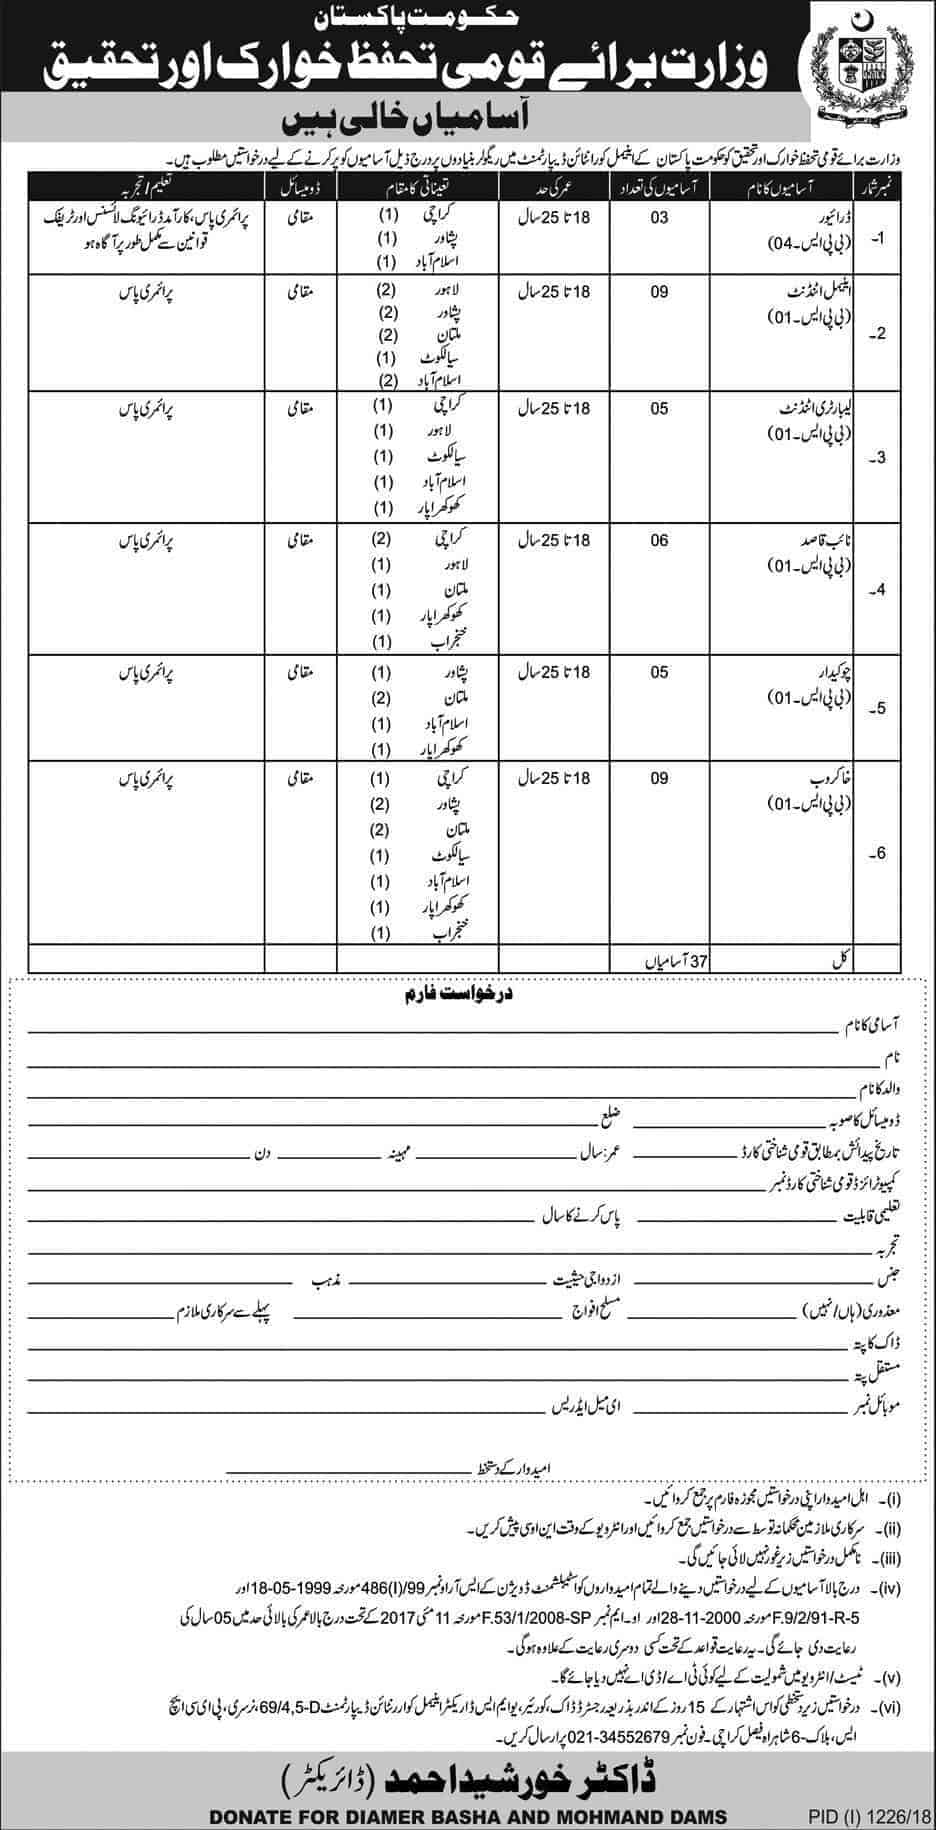 حکومت پاکستان
وزارت برائے قومی تحفظ خوارک اور تحقیق
آسامیاں خالی ہیں
وزارت برائے قومی تحفظ خوارک اور تحقیق کو حکومت پاکستان کے اینیمل کورانٹائن ڈیپارٹمنٹ میں ریگولر بنیادوں پر درج ذیل آسامیوں کو پر کرنے کے لیے درخواستیں مطلوب ہیں۔
نمبر شمار آسامیوں کا نام آسامیوں کی تعداد عمر کی حد تعیناتی کا مقام ڈومیسائل تعلیم/تجربہ
1۔ ڈرائیور 03 18 تا 25 سال کراچی (1) مقامی پرائمری پاس، کارآمد ڈرائیونگ لائسنس اور ٹریفک
(بی پی ایس۔04) پشاور (1) قوانین سے مکمل طور پر آگاہ ہو
اسلام آباد (1)
2۔ اینیمل اٹنڈنٹ 09 18 تا 25 سال لاہور (2) مقامی پرائمری پاس
(بی پی ایس۔01) پشاور (2)
ملتان (2)
سیالکوٹ (1)
اسلام آباد (2)
3۔ لیبارٹری اٹنڈنٹ 05 18 تا 25 سال کراچی (1) مقامی پرائمری پاس
(بی پی ایس۔01) لاہور (1)
سیالکوٹ (1)
اسلام آباد (1)
کھوکھراپار (1)
4۔ نائب قاصد 06 18 تا 25 سال کراچی (2) مقامی پرائمری پاس
(بی پی ایس۔01) لاہور (1)
ملتان (1)
کھوکھراپار (1)
خنجراب (1)
5۔ چوکیدار 05 18 تا 25 سال پشاور (1) مقامی پرائمری پاس
(بی پی ایس۔01) ملتان (2)
اسلام آباد (1)
کھوکھراپار (1)
6۔ خاکروب 09 18 تا 25 سال کراچی (1) مقامی پرائمری پاس
(بی پی ایس۔01) پشاور (2)
ملتان (2)
سیالکوٹ (1)
اسلام آباد (1)
کھوکھراپار (1)
خنجراب (1)
کل 37 آسامیاں
درخواست فارم
آسامی کا نام
نام
والد کا نام
ڈومیسائل کا صوبہ ضلع
تاریخ پیدائش بمطابق قومی شناختی کارڈ عمر: سال مہینہ دن
کمپیوٹرائزڈ قومی شناختی کارڈ نمبر
تعلیمی قابلیت پاس کرنے کا سال
تجربہ
جنس ازدواجی حیثیت مذہب
معذوری (ہاں/نہیں) مسلح افواج پہلے سے سرکاری ملازم
ڈاک کا پتہ
مستقل پتہ
موبائل نمبر ای میل ایڈریس
امیدوار کے دستخط
(i)۔ اہل امیدوار اپنی درخواستیں مجوزہ فارم پر جمع کروائیں۔
(ii)۔ سرکاری ملازمین محکمانہ توسط سے درخواستیں جمع کروائیں اور انٹرویو کے وقت این او سی پیش کریں۔
(iii)۔ نامکمل درخواستیں زیر غور نہیں لائی جائیں گی۔
(iv)۔ درج بالا آسامیوں کے لیے درخواستیں دینے والے تمام امیدواروں کو اسٹیبلشمنٹ ڈویژن کے ایس آر او نمبر 486(I)/99 مورخہ 18-05-1999 اور
F.9/2/91-R-5 مورخہ 28-11-2000 اور او۔ایم نمبر F.53/1/2008-SP مورخہ 11 مئی 2017 کے تحت درج بالا عمر کی بالائی حد میں 05 سال کی
رعایت دی جائے گی۔ یہ رعایت قواعد کے تحت کسی دوسری رعایت کے علاوہ ہوگی۔
(v)۔ ٹیسٹ/انٹرویو میں شمولیت کے لیے کوئی ٹی اے/ڈی اے نہیں دیا جائے گا۔
(vi)۔ درخواستیں زیر دستخطی کو اس اشتہار کے 15 روز کے اندر بذریعہ رجسٹرڈ ڈاک، کورئیر، یو ایم ایس ڈائریکٹر اینیمل کوارنٹائن ڈیپارٹمنٹ 69/4,5-D، نرسری، پی ای سی ایچ
ایس، بلاک-6 شاہراہ فیصل کراچی۔ فون نمبر 021-34552679 پر ارسال کریں۔
ڈاکٹر خورشید احمد (ڈائریکٹر)
DONATE FOR DIAMER BASHA AND MOHMAND DAMS
PID (I) 1226/18